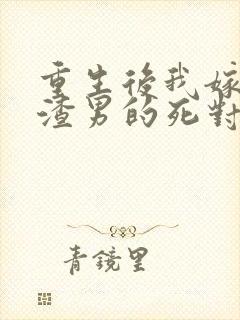 重生後我嫁
渣男的死對
青鏡里